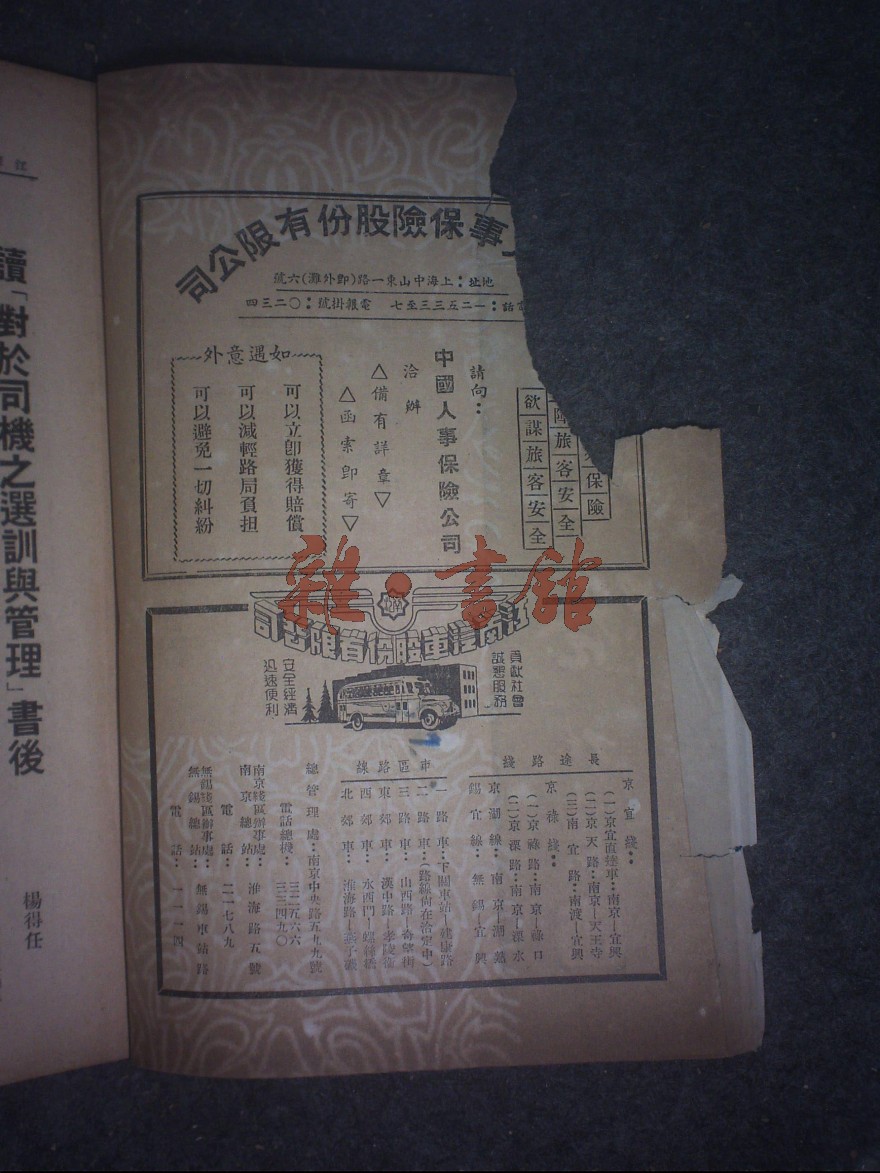 事保險股份有限公司
地址：上海中山東一路(即外灘)六號
話：一二五三三至七　電報掛號：〇二三四
保險
旅客安全
欲謀旅客安全
請向：
中國人事保險公司
洽辦
△備有詳章▽
△函索即寄▽
如遇意外
可以立即獲得賠償
可以減輕路局負担
可以避免一切糾紛
江南汽車股份有限公司
貢献社會
誠懇服務
安全經濟
迅速便利
長途路綫
京宜綫：
(一)京宜直達車：南京—宜興
(二)京天路：南京—天王寺
(三)南宜路：南渡—宜興
京祿綫：
(一)京祿路：南京—祿口
(二)京溧路：南京—溧水
京湖線：南京—湖熟
錫宜線：無錫—宜興
市區路線
一路車：下關車站—建康路
二路車：(路線尚在洽定中)
三路車：山西路—奇望街
東郊車：漢中路—孝陵衞
西郊車：水西門—螺絲橋
北郊車：淮海路—燕子磯
總管理處：南京中央路五九九號
電話總機：三二五六六
三三四九〇
南京綫區辦事處：
南京總站：淮海路五號
電話：二一七八九
無錫綫區辦事處：
無錫總站：無錫車站路
電話：一一一四
讀「對於司機之選訓與管理」書後
楊得任
江
雜·書館